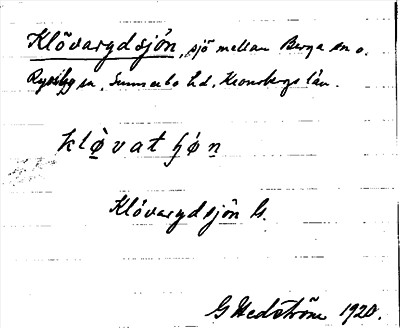 Klövarydsjön, sjö mellan Berga sn o.
Ryssby sn, Sunnerbo hd, Kronobergs län.
kløvat hȯn
Klövarydsjön G.
G Hedström 1920.